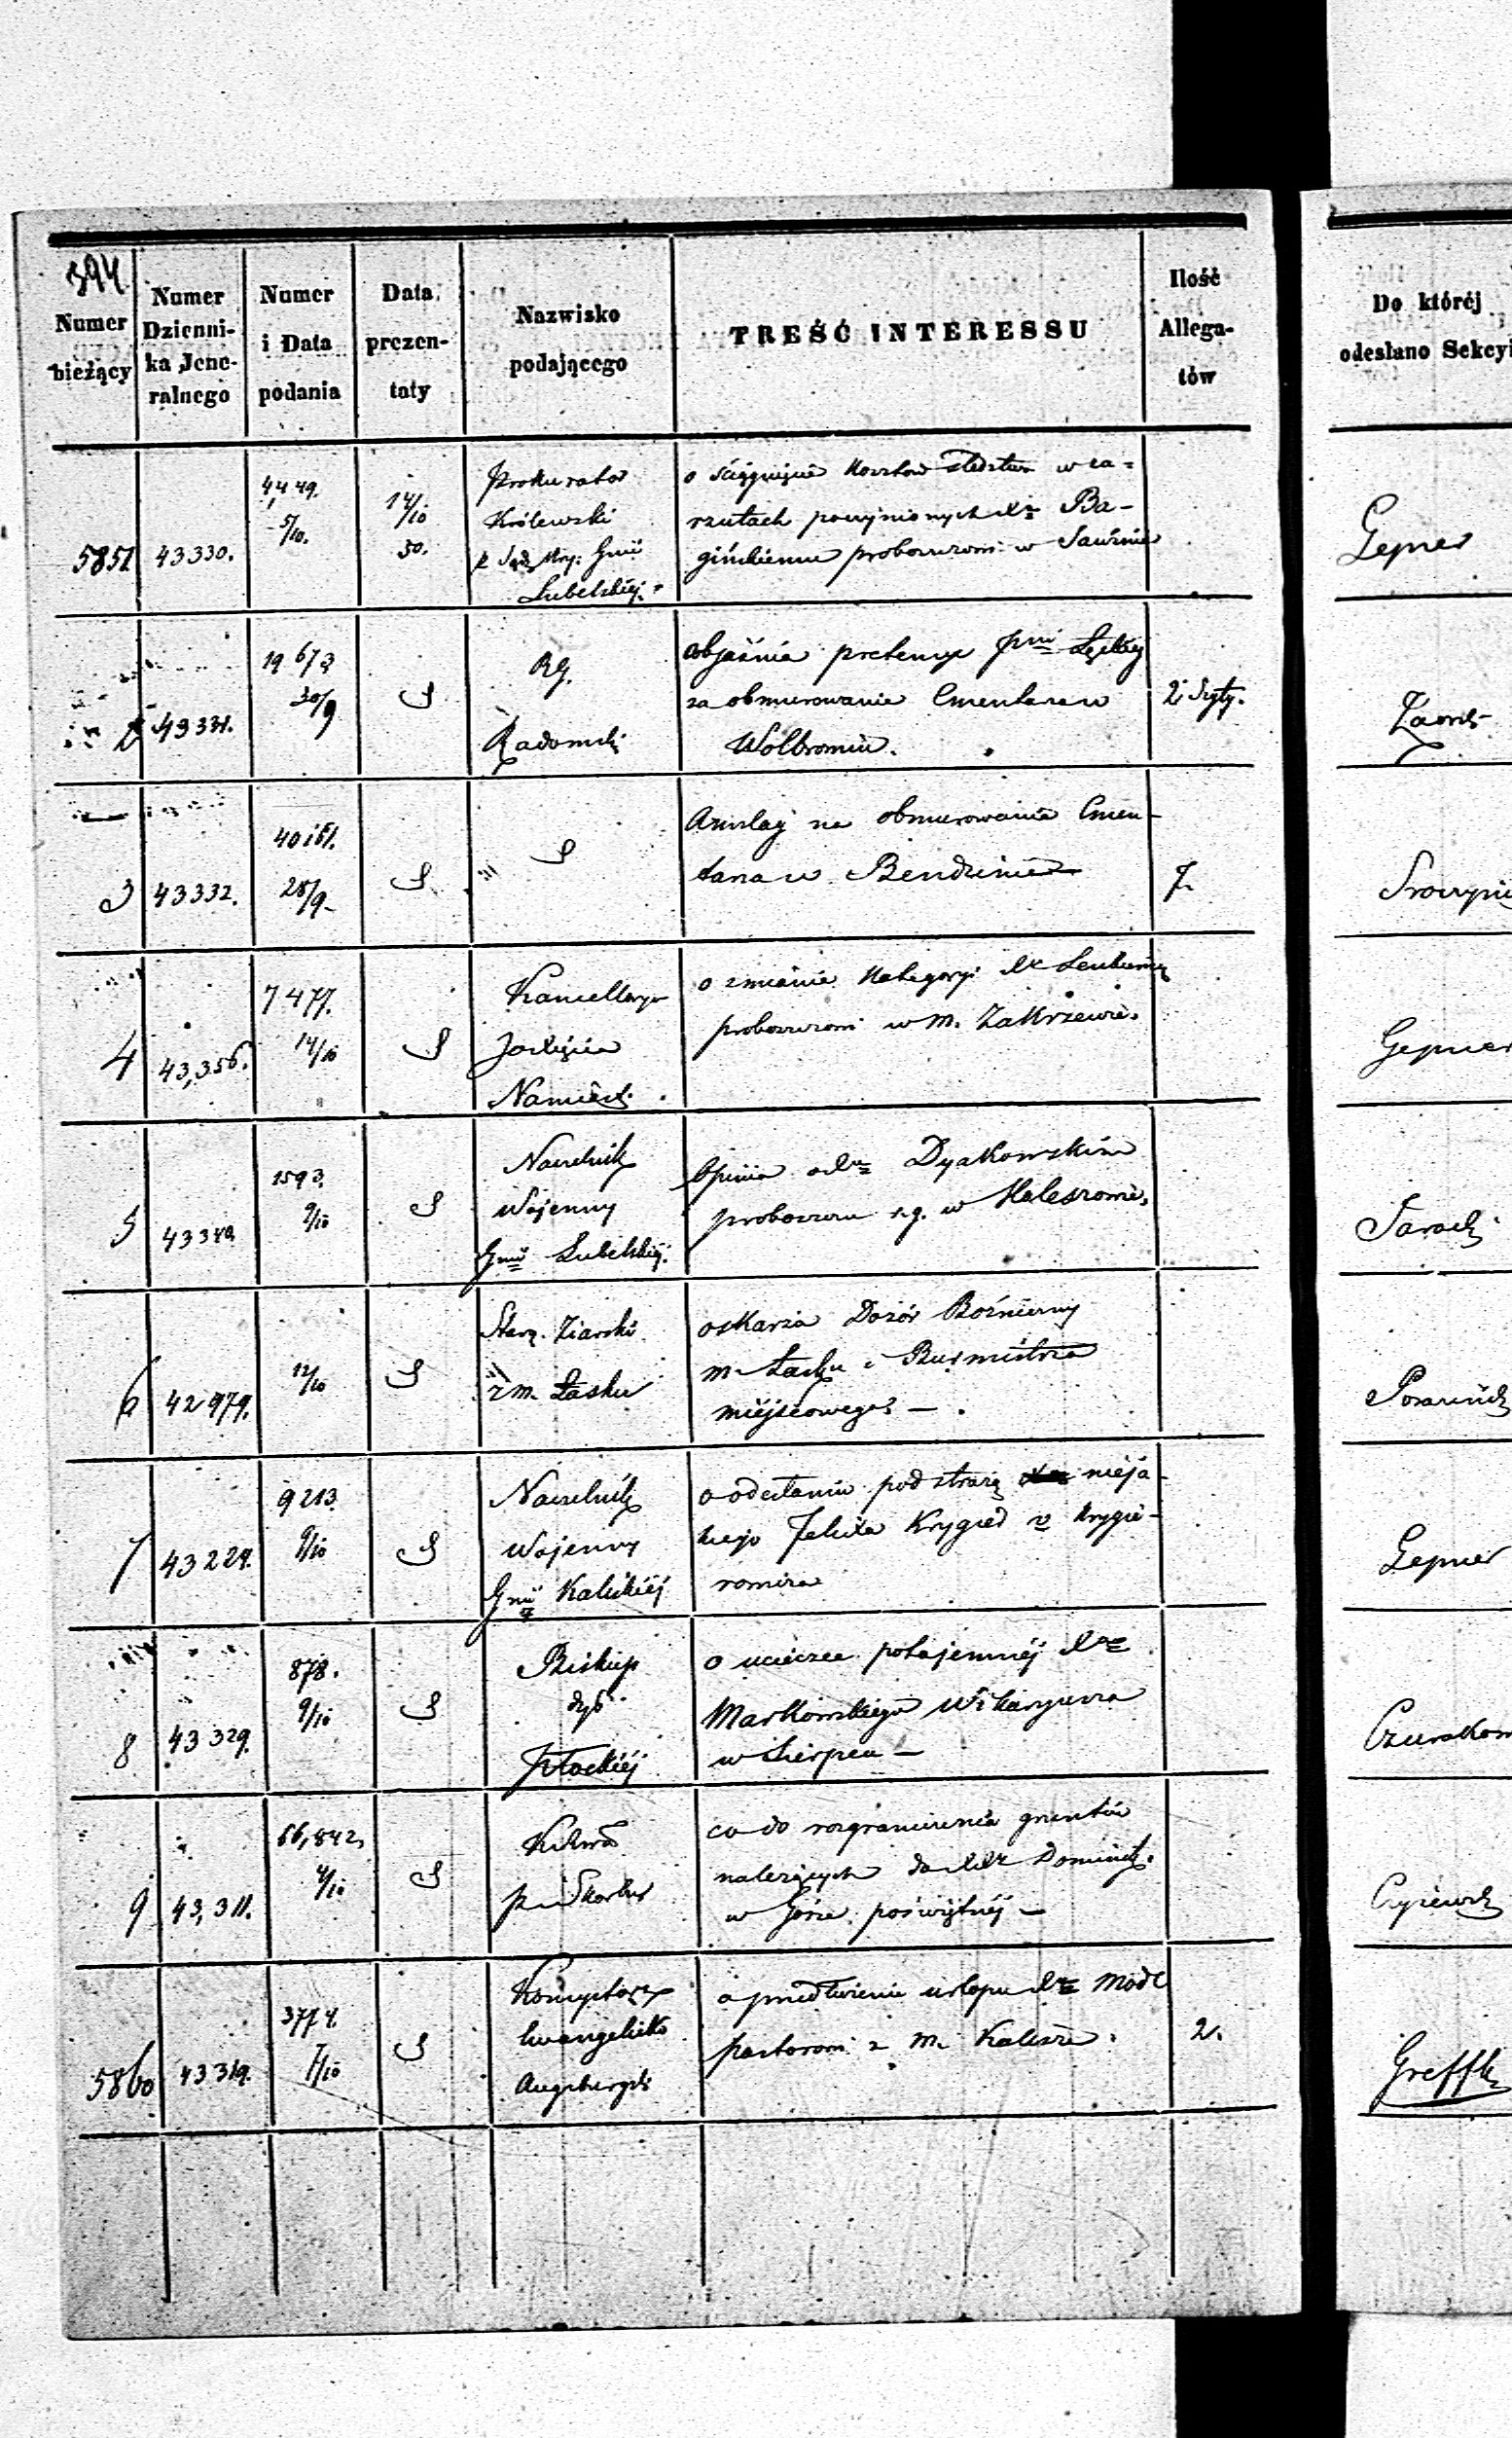 394
Numer bieżący
Numer Dzienni-ka Jene-ralnego
Numer i Data podania
Data prezen-taty
Nazwisko podającego
TREŚĆ INTERESSU
Ilość Allega-tów
Do któréj odesłano Sekcyi
5851 43330.
4,449.
5/10.
14/10
50.
Prokurator
Królewski
Lubelskiéj
o ściągnięcie Kosztów śledztwa w za-
rzutach poczynionych Xx Ba-
gińskiemu proboszczowi w Sawinie
Gepner
2 43331.
19673
30/9
S
RG.
Radomski
objaśnia pretensye
za obmurowanie Cmentarza w
Wolbromiu.
2
3 43332.
40151.
28/9
S
S
Anszlag na obmurowania Cmen-
tarza w Bendzinie
7.
4 43,356.
7477.
14/10
S
Kancellarya
Jo Księcia
Namiest.
o zmianie Kategoryi Xx
proboszczowi w m. Zakrzewie.
Gepner
5
1593.
9/10
S
Naczelnik
Wojenny
Gnii Lubelskiéj.
Opinia o Xx Dyakowskim
proboszczu r.g. w
6 42979.
12/10
S
Starz. Ziarski
z m. Łasku
oskarża Dozór Bożniczny
m. Łasku i Burmistrza
miejscowego —.
7 43229.
9213.
9/10
S
Naczelnik
Wojenny
Gnii Kaliskiéj
o odesłaniu pod strażą nieja-
kiego Felixa Krygier v Krygie-
rowicza
Gepner
8 43329.
878.
9/10
S
Biskup
dyec.
Płockiéj
o ucieczce potajemnéj Xa
Markowskiego Wikaryusza
w Sierpcu —
9 43,311.
66,842.
4/10
S
P. i Skarbu
co do rozgraniczenia gruntów
należących do XXx Dominik.
w Górze poświętnéj —
5860 43319.
3774.
7/10
S
Konsystorz
Ewangelicko
Augsburgski
o przedłużenie urlopu Xx Modl
pastorowi z m. Kalisza.
2.